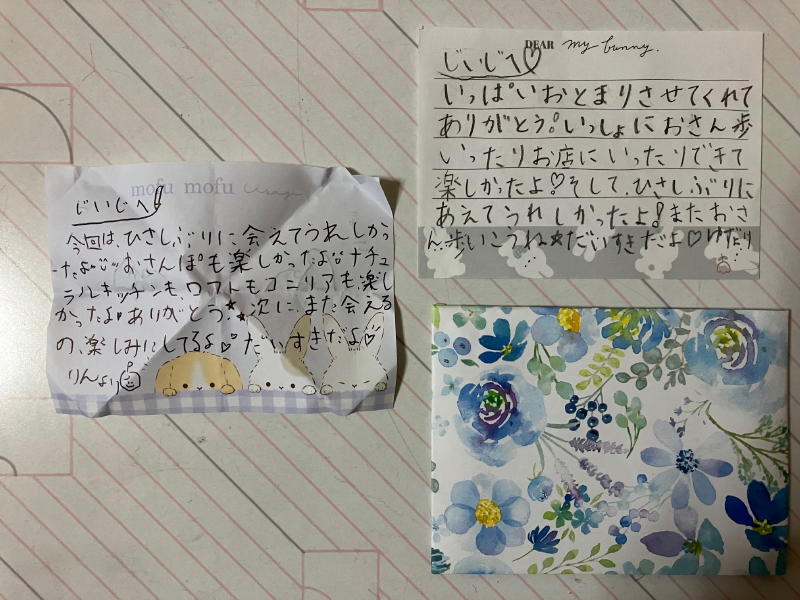 mofu mofu usagi
じいじへ
今回は、ひさしぶりに会えてうれしかっ
たよ おさんぽも楽しかったよ ナチュ
ラルキッチンも、ロフトもコニリアも楽し
かったよ ありがとう 次に、また会える
の、楽しみにしてるよ♡ だいすきだよ♡
りんより
DEAR my bunny.
じいじへ♡
いっぱいおとまりさせてくれて
ありがとう。いっしょにおさん歩
いったりお店にいったりできて
楽しかったよ♡そして、ひさしぶりに
あえてうれしかったよ!またおさ
ん歩いこうね☆だいすきだよ♡